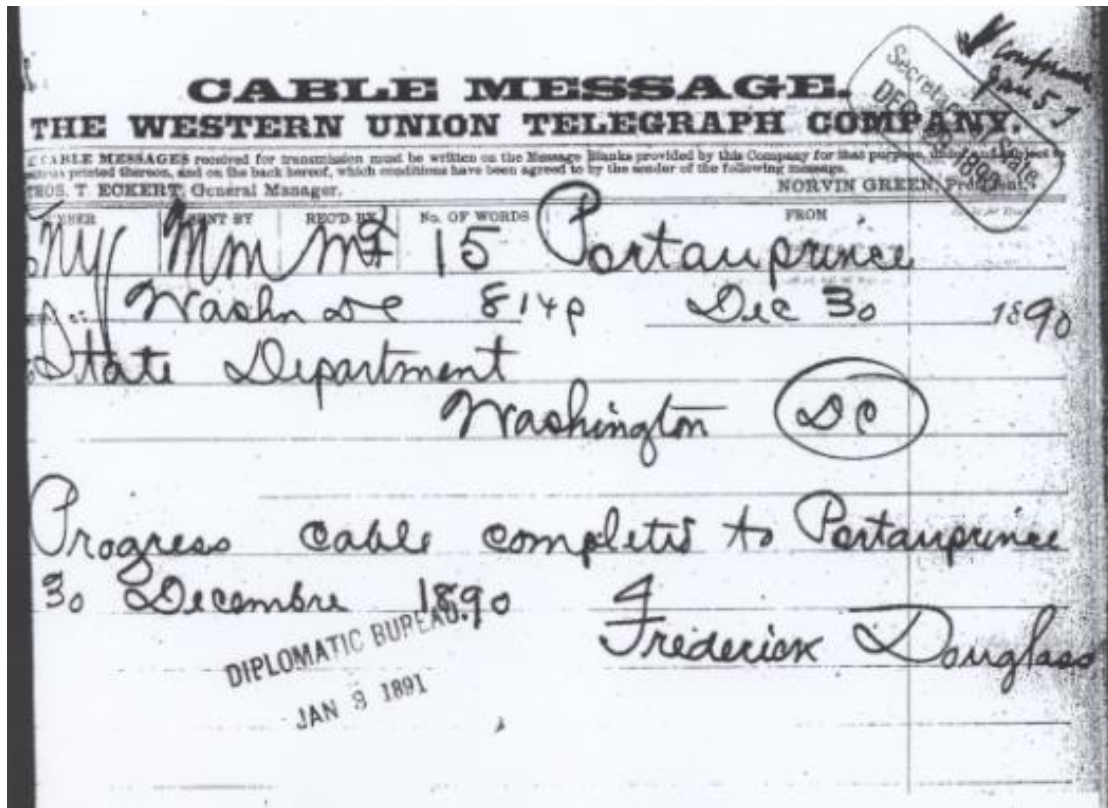 CABLE MESSAGE.
THE WESTERN UNION TELEGRAPH COMPANY.
CABLE MESSAGES received for transmission must be written on the Message Blanks provided by this Company for that purpose,
printed thereon, and on the back hereof, which conditions have been agreed to by the sender of the following message.
THOS. T. ECKERT, General Manager. NORVIN GREEN, President.
SENT BY REC'D BY No. OF WORDS FROM
NY Mm 15 Portauprince
Washn DC 814p Dec 30 1890
State Department
Washington DC
Progress cable completed to Portauprince
30 Decembre 1890
Frederick Douglass
DIPLOMATIC BUREAU.
JAN 3 1891
Secretary State
DEC 1890
Jan 5